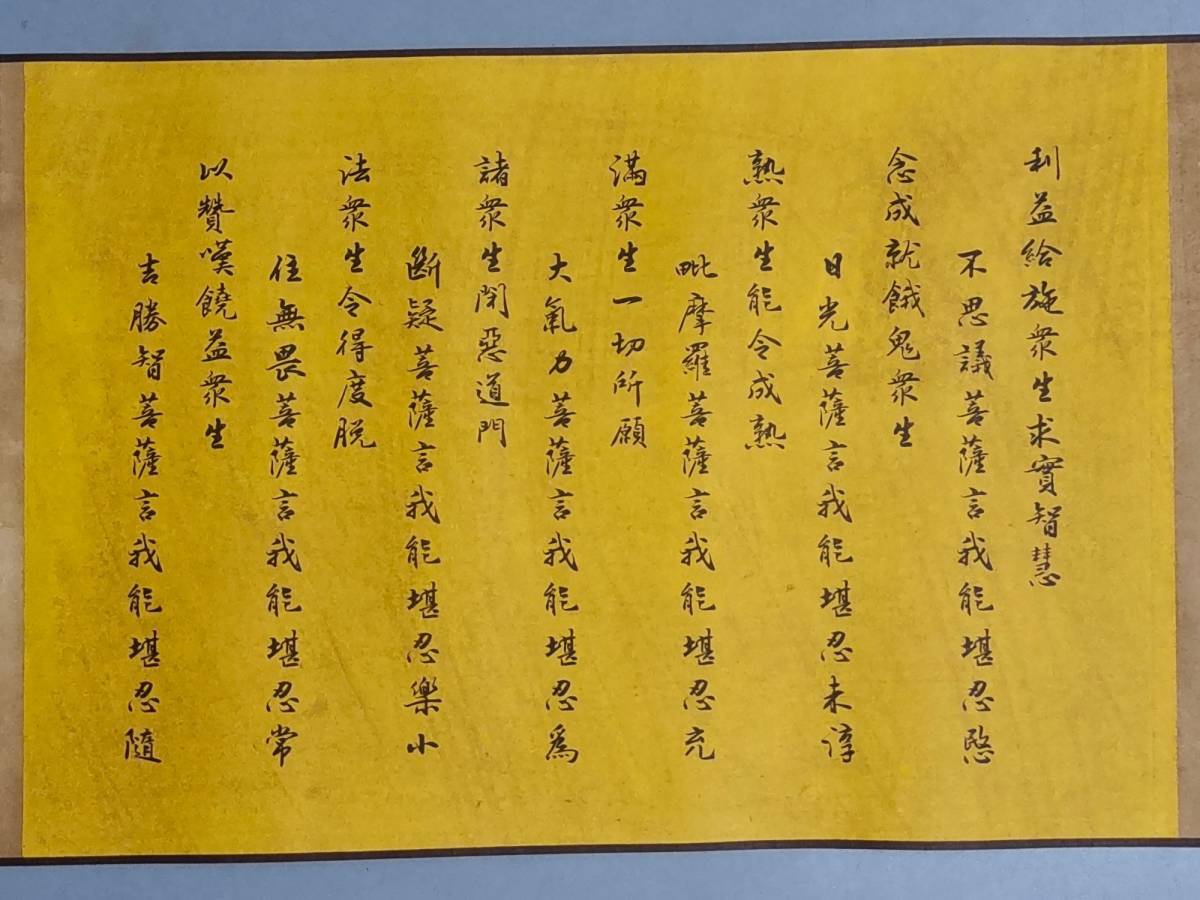 利益給施衆生求實智慧
不思議菩薩言我能堪忍愍
念成就餓鬼衆生
日光菩薩言我能堪忍未淳
熟衆生能令成熟
毗摩羅菩薩言我能堪忍充
滿衆生一切所願
大氣力菩薩言我能堪忍爲
諸衆生閉惡道門
斷疑菩薩言我能堪忍樂小
法衆生令得度脫
住無畏菩薩言我能堪忍常
以贊嘆饒益衆生
吉勝智菩薩言我能堪忍隨